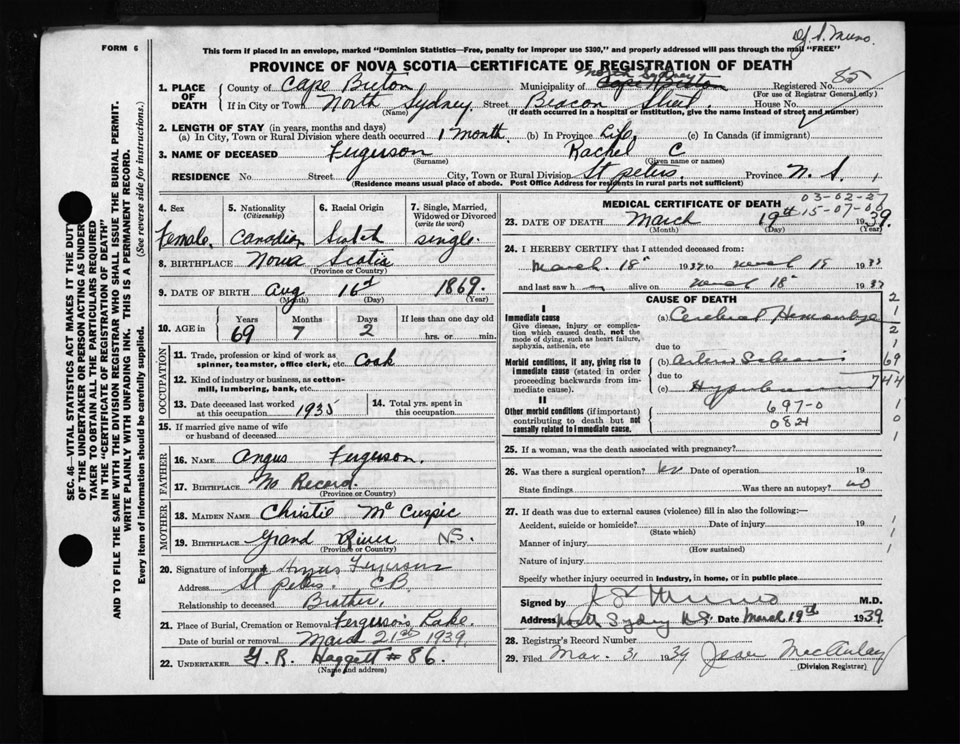 FORM 6
This form if placed in an envelope, marked "Dominion Statistics—Free, penalty for improper use $300," and properly addressed will pass through the mail "FREE"
PROVINCE OF NOVA SCOTIA—CERTIFICATE OF REGISTRATION OF DEATH
1. PLACE OF DEATH
County of Cape Breton Municipality of North Sydney Cape Breton Registered No. 85
(For use of Registrar General only)
If in City or Town North Sydney Street Beacon Street House No.
(Name) (If death occurred in a hospital or institution, give the name instead of street and number)
2. LENGTH OF STAY (in years, months and days)
(a) In City, Town or Rural Division where death occurred 1 month (b) In Province Life (c) In Canada (if immigrant)
3. NAME OF DECEASED Ferguson Rachel C
(Surname) (Given name or names)
RESIDENCE No. Street City, Town or Rural Division St Peters. Province N. S.
(Residence means usual place of abode. Post Office Address for residents in rural parts not sufficient)
4. Sex 5. Nationality (Citizenship) 6. Racial Origin 7. Single, Married, Widowed or Divorced (write the word)
Female Canadian Scotch single.
8. BIRTHPLACE Nova Scotia
(Province or Country)
9. DATE OF BIRTH Aug 16th 1869
(Month) (Day) (Year)
10. AGE in Years Months Days If less than one day
69 7 2 hrs. or min.
OCCUPATION
11. Trade, profession or kind of work as spinner, teamster, office clerk, etc. Cook
12. Kind of industry or business, as cotton-mill, lumbering, bank, etc.
13. Date deceased last worked at this occupation 1935 14. Total yrs. spent in this occupation
15. If married give name of wife or husband of deceased
FATHER
16. NAME Angus Ferguson.
17. BIRTHPLACE No Record
(Province or Country)
MOTHER
18. MAIDEN NAME Christie McCuspic
19. BIRTHPLACE Grand River N.S.
(Province or Country)
20. Signature of informant Angus Ferguson
Address St Peters. C B.
Relationship to deceased Brother.
21. Place of Burial, Cremation or Removal Fergusons Lake
Date of burial or removal March 21st 1939
22. UNDERTAKER G. R. Haggett #86.
(Name and address)
MEDICAL CERTIFICATE OF DEATH
03-02-27
15-07-00
23. DATE OF DEATH March 19th 1939.
(Month) (Day) (Year)
24. I HEREBY CERTIFY that I attended deceased from:
March 18" 1939 to March 18 1939
and last saw h alive on March 18" 1939
CAUSE OF DEATH
I
Immediate cause
Give disease, injury or complication which caused death, not the mode of dying, such as heart failure, asphyxia, asthenia, etc
(a) Cerebral Hemorrhage
due to
Morbid conditions, if any, giving rise to immediate cause (stated in order proceeding backwards from immediate cause).
(b)
due to
(c)
II
Other morbid conditions (if important) contributing to death but not causally related to immediate cause.
697-0
0821
25. If a woman, was the death associated with pregnancy?
26. Was there a surgical operation? No Date of operation 19
State findings Was there an autopsy? no
27. If death was due to external causes (violence) fill in also the following:—
Accident, suicide or homicide? Date of injury 19
(State which)
Manner of injury
(How sustained)
Nature of injury
Specify whether injury occurred in industry, in home, or in public place
Signed by M.D.
Address North Sydney N.S. Date March 19th 1939
28. Registrar's Record Number
29. Filed Mar. 31 1939 Jean MacAulay
(Division Registrar)
SEC. 46—VITAL STATISTICS ACT MAKES IT THE DUTY
OF THE UNDERTAKER OR PERSON ACTING AS UNDER
TAKER TO OBTAIN ALL THE PARTICULARS REQUIRED
IN THE "CERTIFICATE OF REGISTRATION OF DEATH"
AND TO FILE THE SAME WITH THE DIVISION REGISTRAR WHO SHALL ISSUE THE BURIAL PERMIT.
WRITE PLAINLY WITH UNFADING INK. THIS IS A PERMANENT RECORD.
Every item of information should be carefully supplied.
(See reverse side for instructions.)